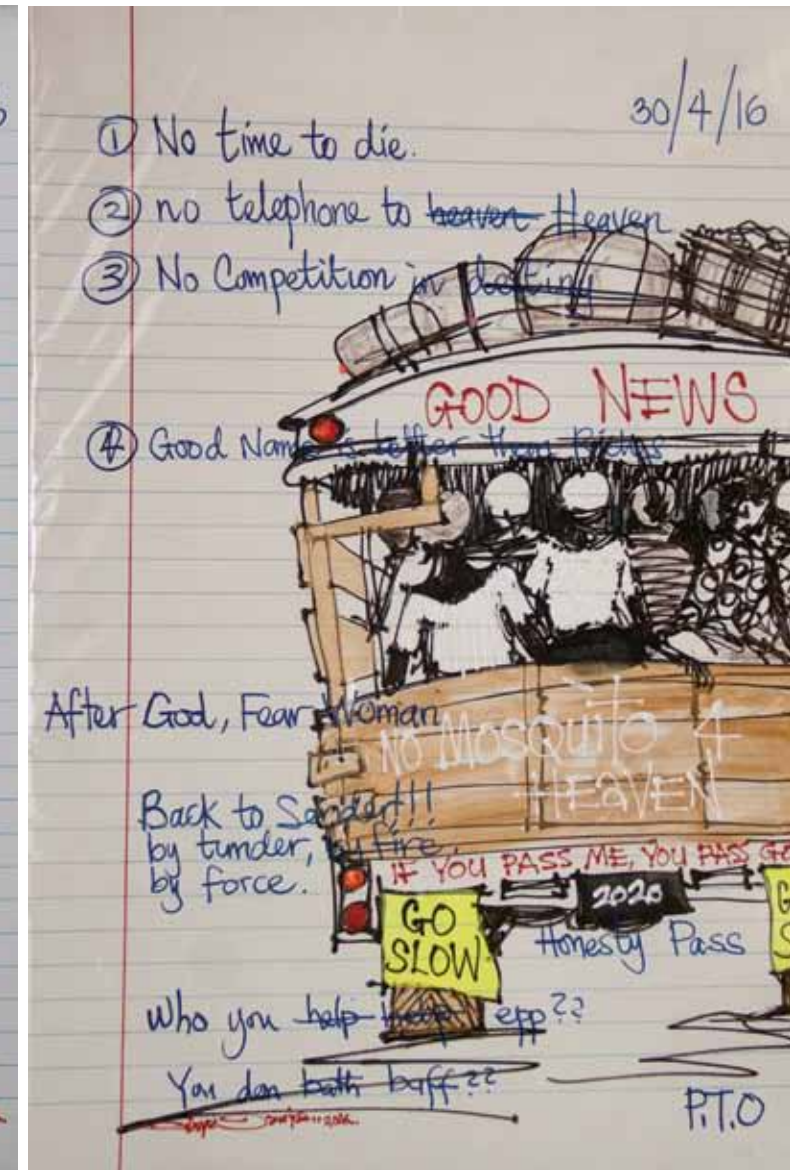 30/4/16
① No time to die.
② no telephone to heaven Heaven
③ No Competition in destiny
GOOD NEWS
④ Good Name is better than Riches
After God, Fear Woman
NO MOSQUITO 4
HEAVEN
Back to Sender!!
by tunder, by fire.
by force.
IF YOU PASS ME, YOU PAS GO
2020
GO
SLOW
Honesty Pass
Who you help epp??
You don bath baff??
P.T.O